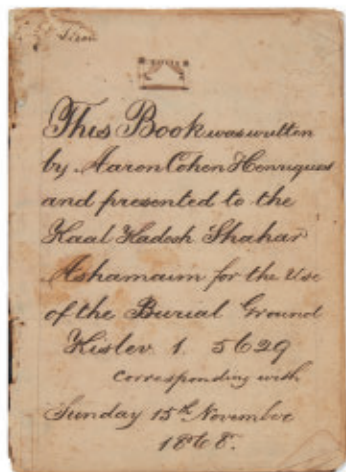 This Book was written
by Aaron Cohen Henriques
and presented to the
Kaal Kadosh Shahar
Ashamaim for the Use
of the Burial Ground
Kislev 1. 5629
corresponding with
Sunday 15th Novembre
1868.